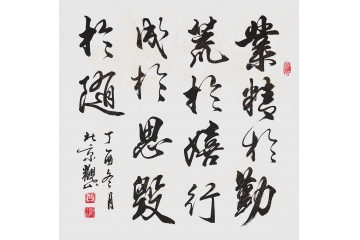 業精於勤
荒於嬉行
成於思毀
於隨
丁酉冬月
於京觀山